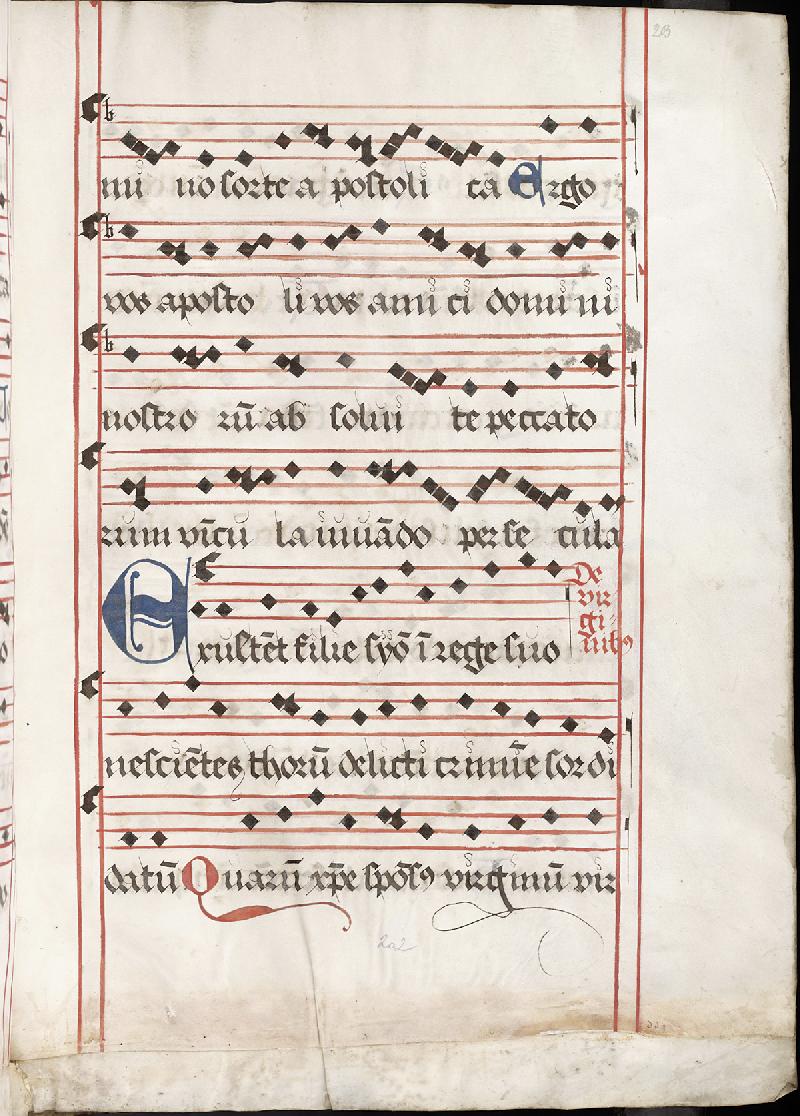 203
mi no sorte a postoli ca Ergo
vos aposto li vos ami ci domi ni
nostro rū ab solui te peccato
rum vīcu la iuuādo per se cula
De
vir
gi
nibꝰ
Exultēt filie syō ī rege suo
nesciētes thorū delicti crimīe sordi
datū Quarū xp̄e spōsꝰ virginū vir
202